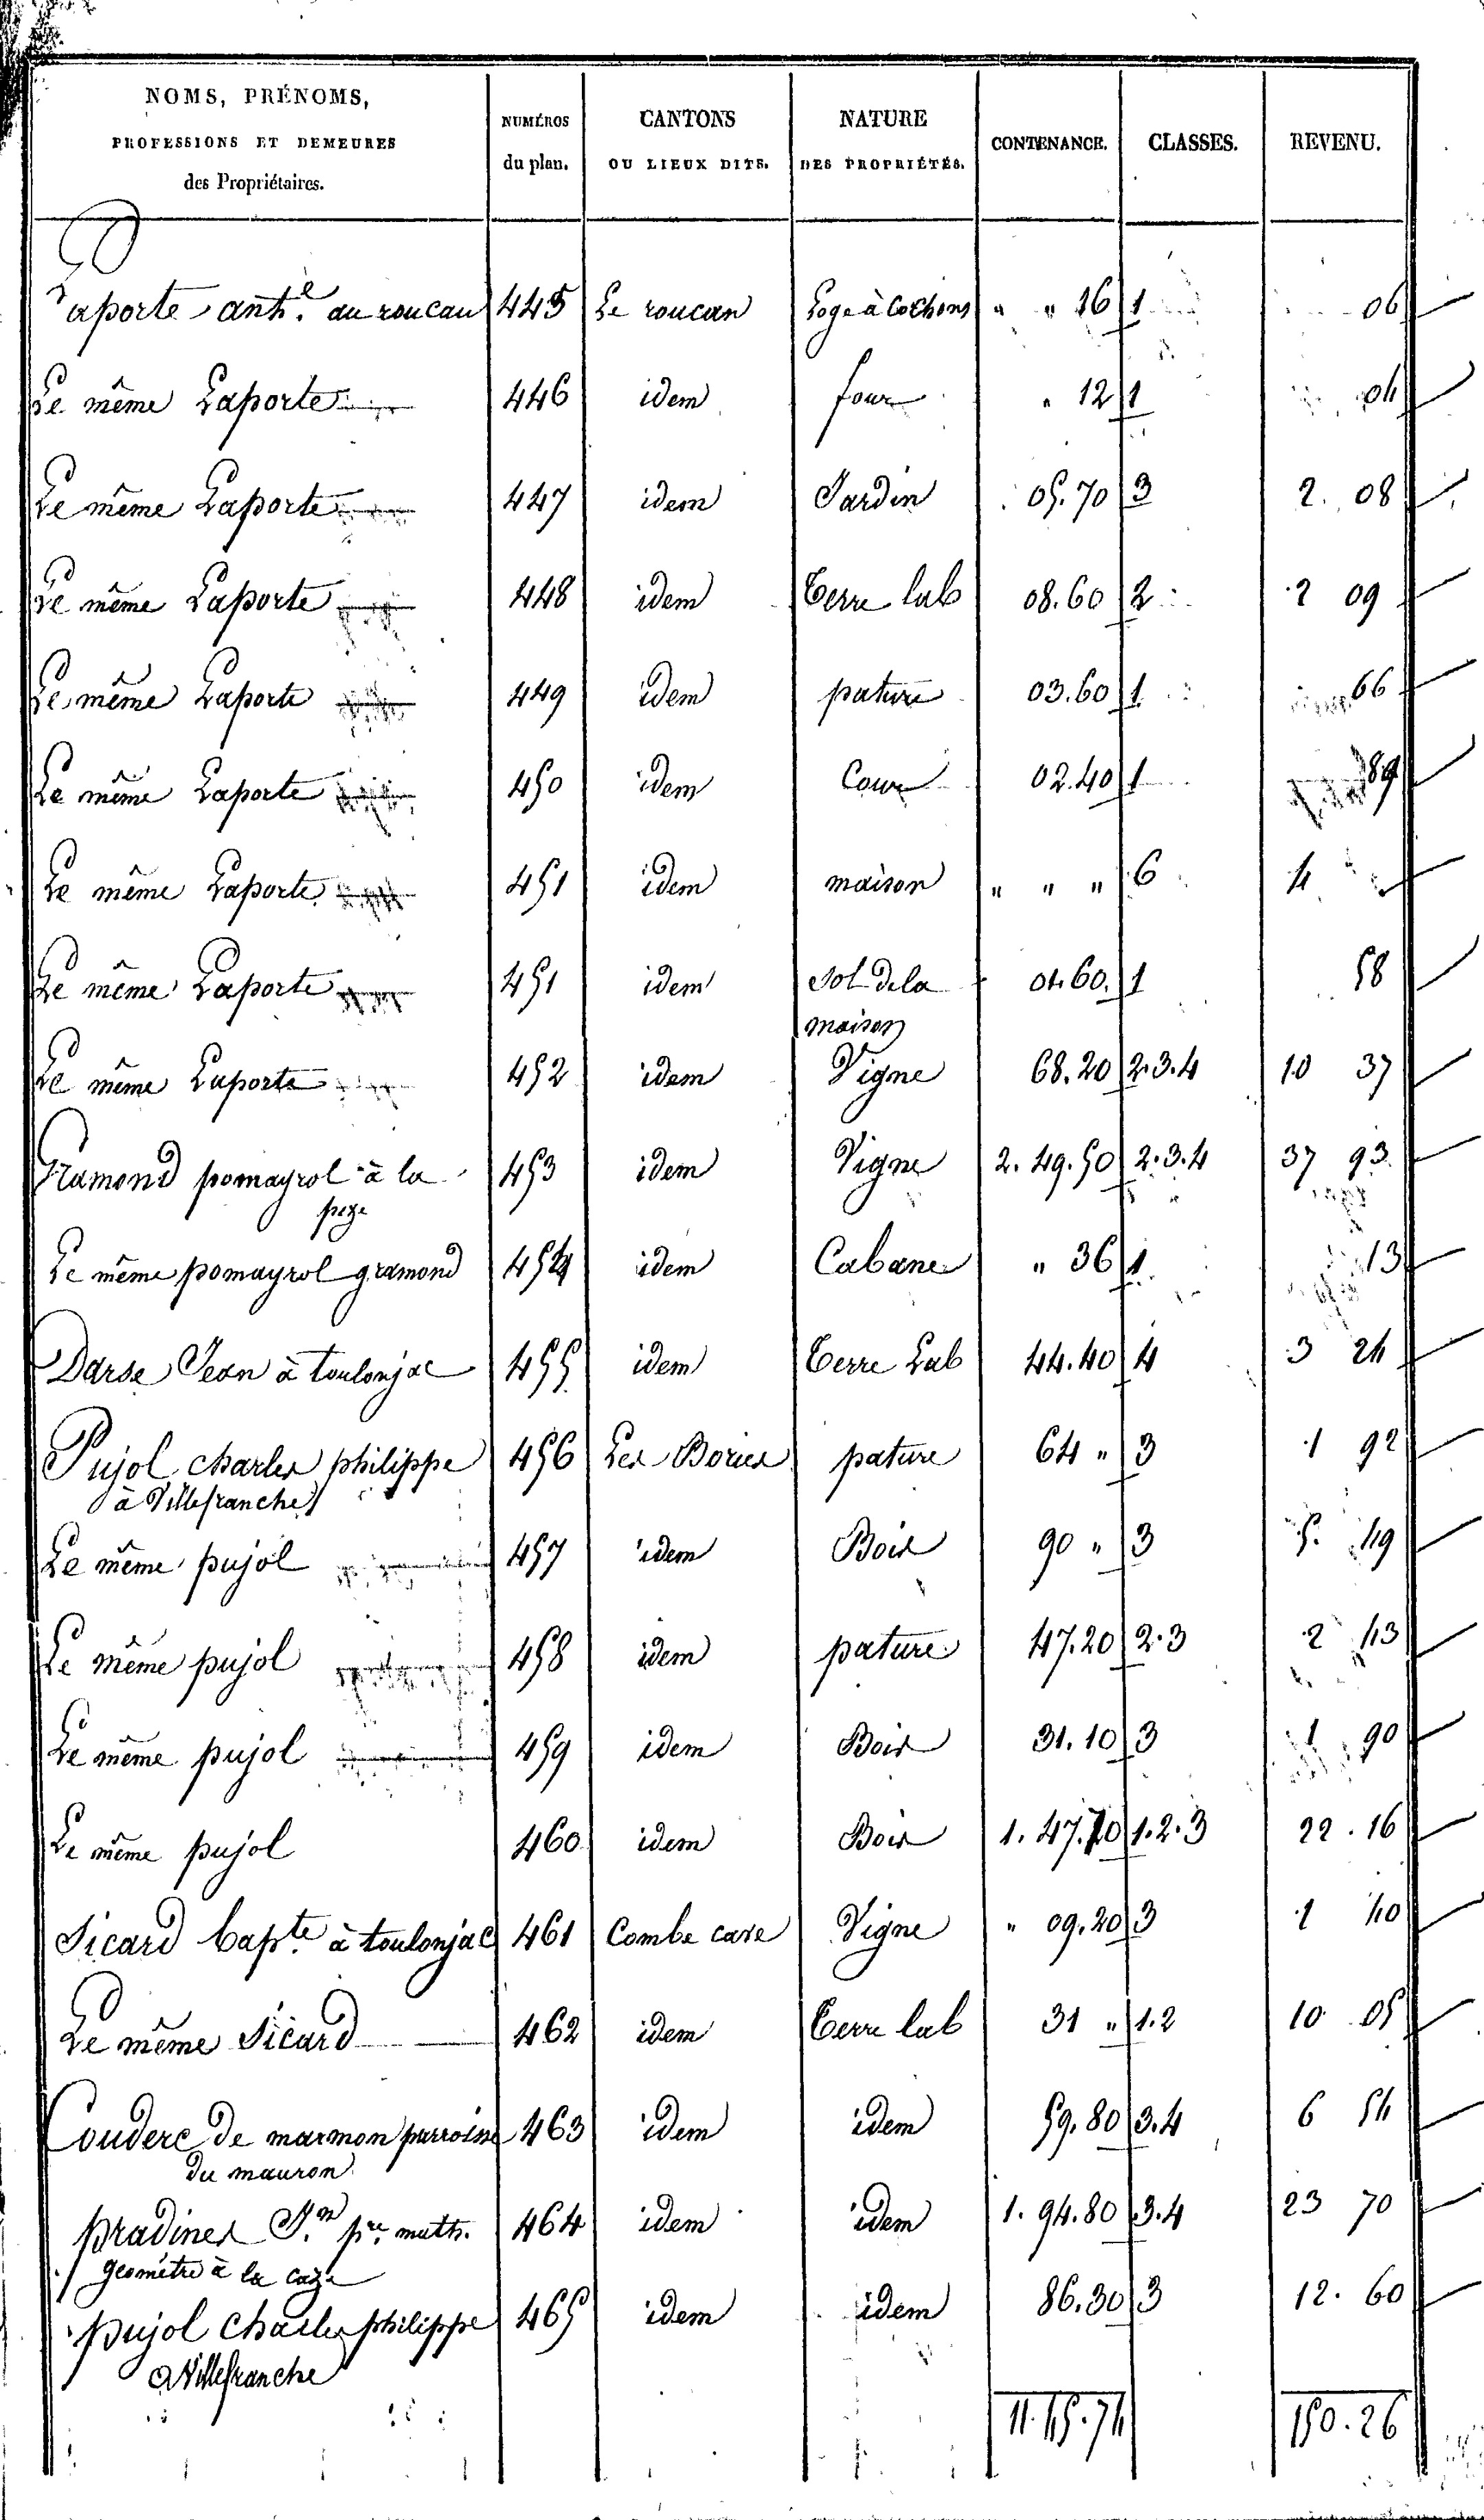 NOMS, PRÉNOMS,
PROFESSIONS ET DEMEURES
des Propriétaires.
NUMÉROS
du plan.
CANTONS
OU LIEUX DITS.
NATURE
DES PROPRIÉTÉS.
CONTENANCE.
CLASSES.
REVENU.
Laporte ant.e au roucan 445 Le roucan Loge à Cochons " " 16 1 06
Le même Laporte 446 idem four " 12 1 04
Le même Laporte 447 idem Jardin 05.70 3 2. 08
Le même Laporte 448 idem Terre lab 08.60 2 2 09
Le même Laporte 449 idem pature 03.60 1 66
Le même Laporte 450 idem Cour 02.40 1 89
Le même Laporte 451 idem maison " " " 6 4
Le même Laporte 451 idem sol de la 01.60. 1 58
maison
Le même Laporte 452 idem Vigne 68.20 2.3.4 10 37
Gramond pomayrol à la 453 idem Vigne 2. 49.50 2.3.4 37 93
peze
Le même pomayrol gramond 454 idem Cabane " 36 1 13
Darse Jean à toulonjac 455 idem Terre Lab 44.40 4 3 24
Pujol charles philippe 456 Les Bories pature 64 " 3 1 92
à Villefranche
Le même pujol 457 idem Bois 90 " 3 5. 49
Le même pujol 458 idem pature 47.20 2.3 2 43
Le même pujol 459 idem Bois 31.10 3 1 90
Le même pujol 460 idem Bois 1. 47.70 1.2.3 22.16
Sicard bapte à toulonjac 461 Combe cave Vigne " 09.20 3 1 40
Le même Sicard 462 idem Terre lab 31 " 1.2 10 05
Couderc de marmon parroisse 463 idem idem 59.80 3.4 6 54
du mauron
pradines pre math. 464 idem idem 1. 94.80 3.4 23 70
geomètre à la caze
pujol charles philippe 465 idem idem 86.30 3 12. 60
a Villefranche
11.45.74 150.26